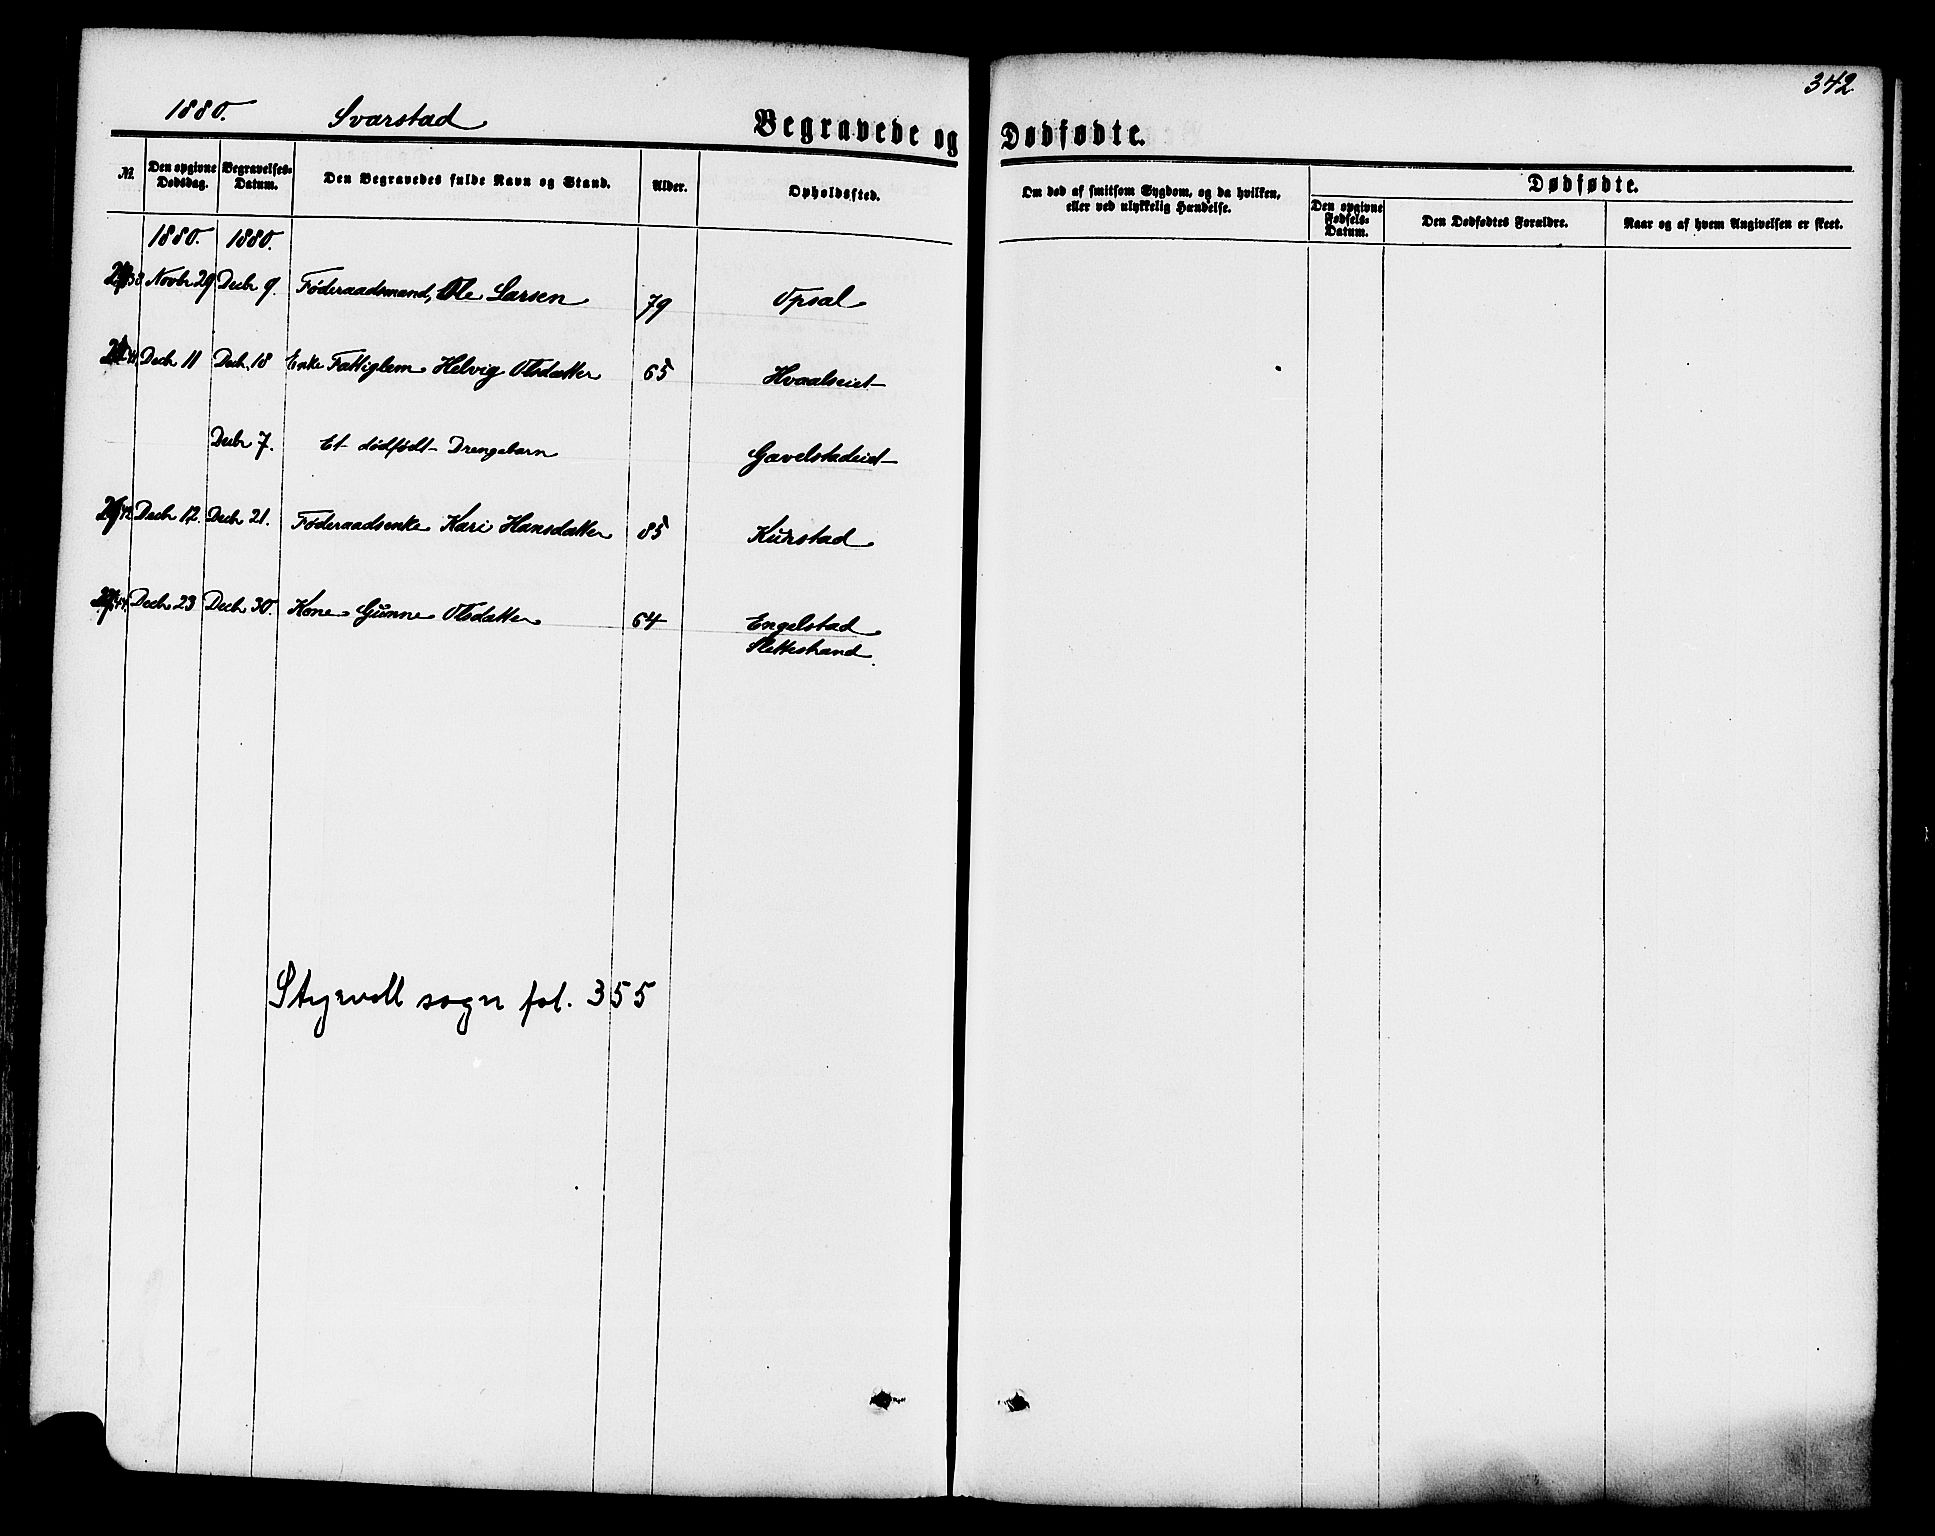 342
1880. Svarstad Begravede og Dødfødte.
№. Den opgivne Dødsdag. Begravelses-Datum. Den Begravedes fulde Navn og Stand. Alder. Opholdssted. Om død af smitsom Sygdom, og da hvilken, eller ved ulykkelig Hændelse. Dødfødte.
Den opgivne Fødsels-Datum. Den Dødfødtes Forældre. Naar og af hvem Angivelsen er skeet.
1880. 1880.
Novbr 29 Decbr 9. Føderaadsmand, Ole Larsen 79 Opsal
Decbr 11 Decbr 18 Enke Fattiglem Helvig Olsdatter 65 Hvaalseiet
Decbr 7. Et dødfødt Drengebarn Gavelstadeiet
Decbr 12. Decbr 21. Føderaadsenke Kari Hansdatter 85 Kurstad
Decbr 23 Decbr 30. Kone Gunne Olsdatter 64 Engelstad
Slettestrand.
Styrvoll sogn fol. 355